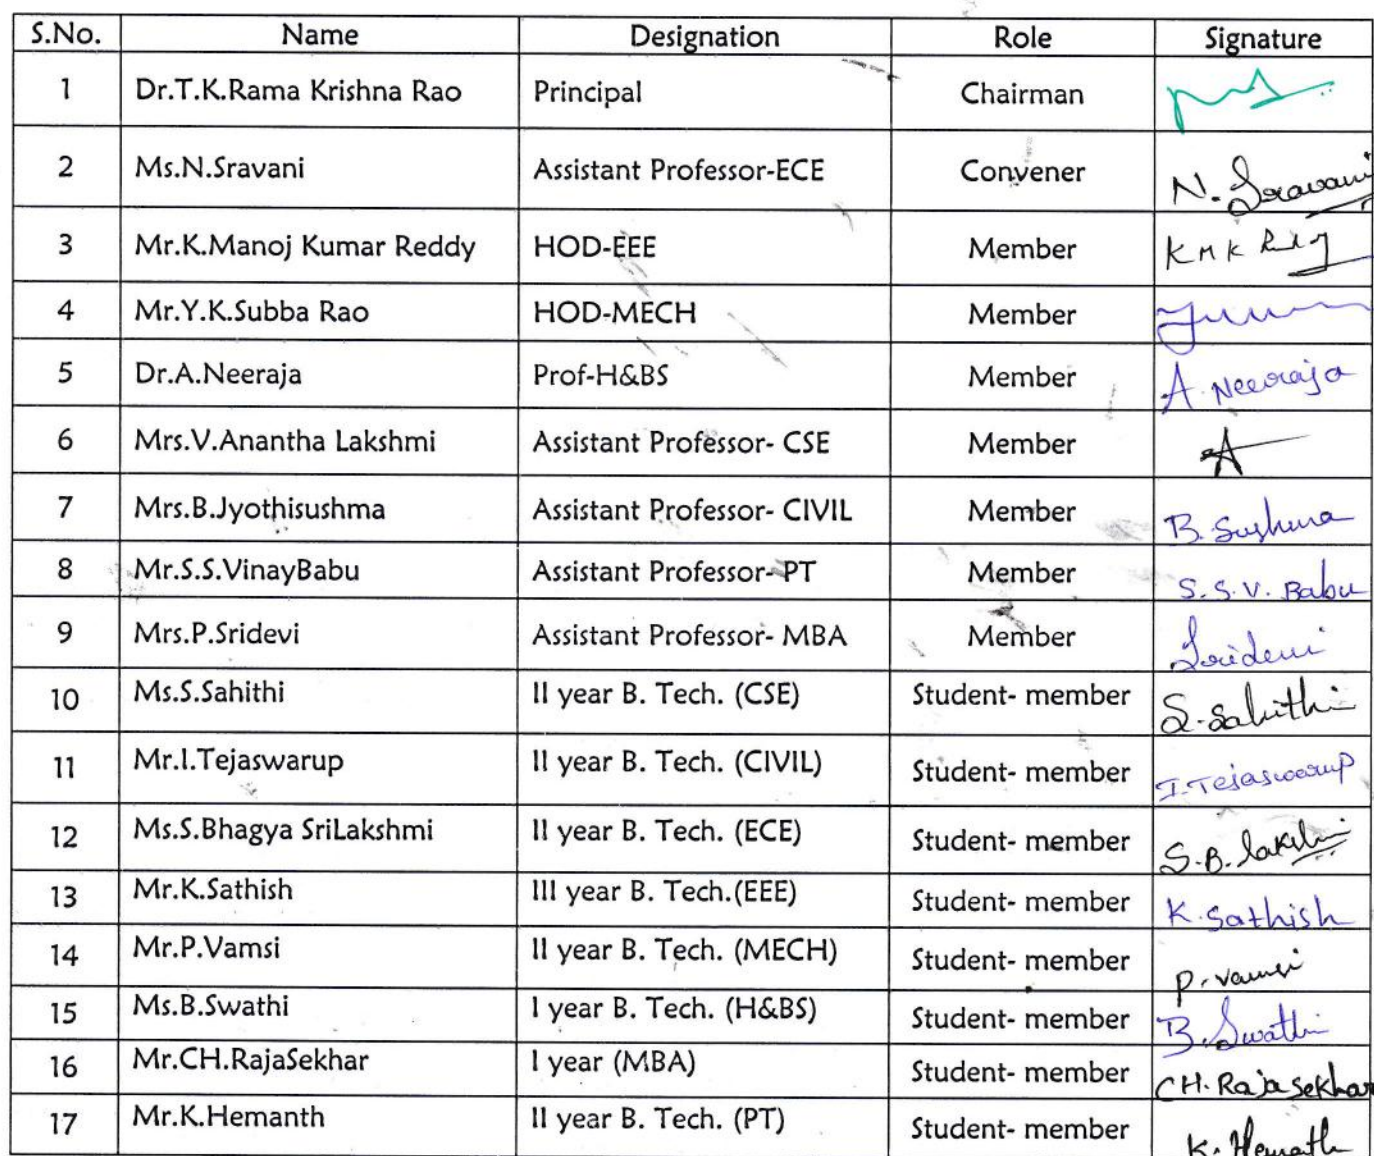 S.No. Name Designation Role Signature
1 Dr.T.K.Rama Krishna Rao Principal Chairman
2 Ms.N.Sravani Assistant Professor-ECE Convener N. Sravani
3 Mr.K.Manoj Kumar Reddy HOD-EEE Member K M K Reddy
4 Mr.Y.K.Subba Rao HOD-MECH Member
5 Dr.A.Neeraja Prof-H&BS Member A. Neeraja
6 Mrs.V.Anantha Lakshmi Assistant Professor- CSE Member
7 Mrs.B.Jyothisushma Assistant Professor- CIVIL Member B. Sushma
8 Mr.S.S.VinayBabu Assistant Professor- PT Member S. S. V. Babu
9 Mrs.P.Sridevi Assistant Professor- MBA Member Sridevi
10 Ms.S.Sahithi II year B. Tech. (CSE) Student- member S. Sahithi
11 Mr.I.Tejaswarup II year B. Tech. (CIVIL) Student- member I. Tejaswarup
12 Ms.S.Bhagya SriLakshmi II year B. Tech. (ECE) Student- member S. B. Lakshmi
13 Mr.K.Sathish III year B. Tech.(EEE) Student- member K. Sathish
14 Mr.P.Vamsi II year B. Tech. (MECH) Student- member P. Vamsi
15 Ms.B.Swathi I year B. Tech. (H&BS) Student- member B. Swathi
16 Mr.CH.RajaSekhar I year (MBA) Student- member CH. Rajasekhar
17 Mr.K.Hemanth II year B. Tech. (PT) Student- member K. Hemanth